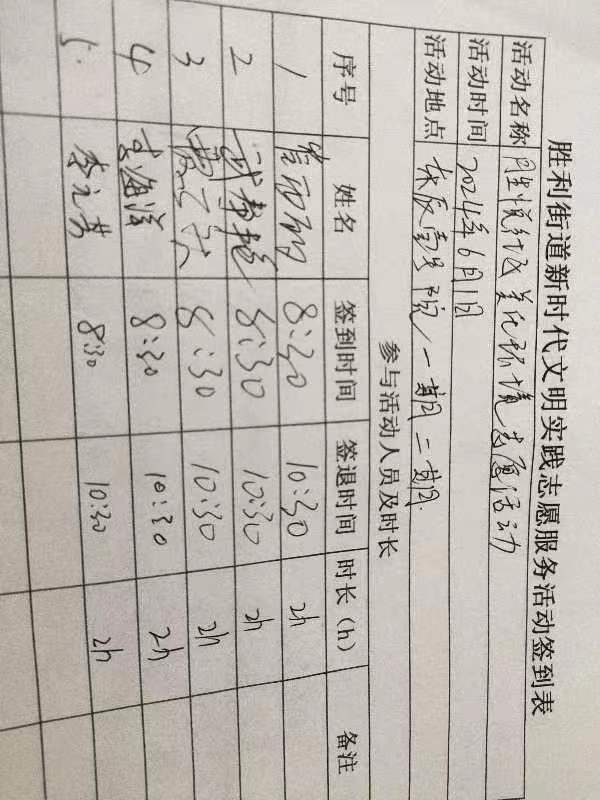 胜利街道新时代文明实践志愿服务活动签到表
活动名称 胜悦社区美化环境志愿活动
活动时间 2024年6月1日
活动地点 东辰 书院一期二期
参与活动人员及时长
序号 姓名 签到时间 签退时间 时长(h) 备注
1 8:30 10:30 2h
2 8:30 10:30 2h
3 8:30 10:30 2h
4 李海洋 8:30 10:30 2h
5. 李元芳 8:30 10:30 2h